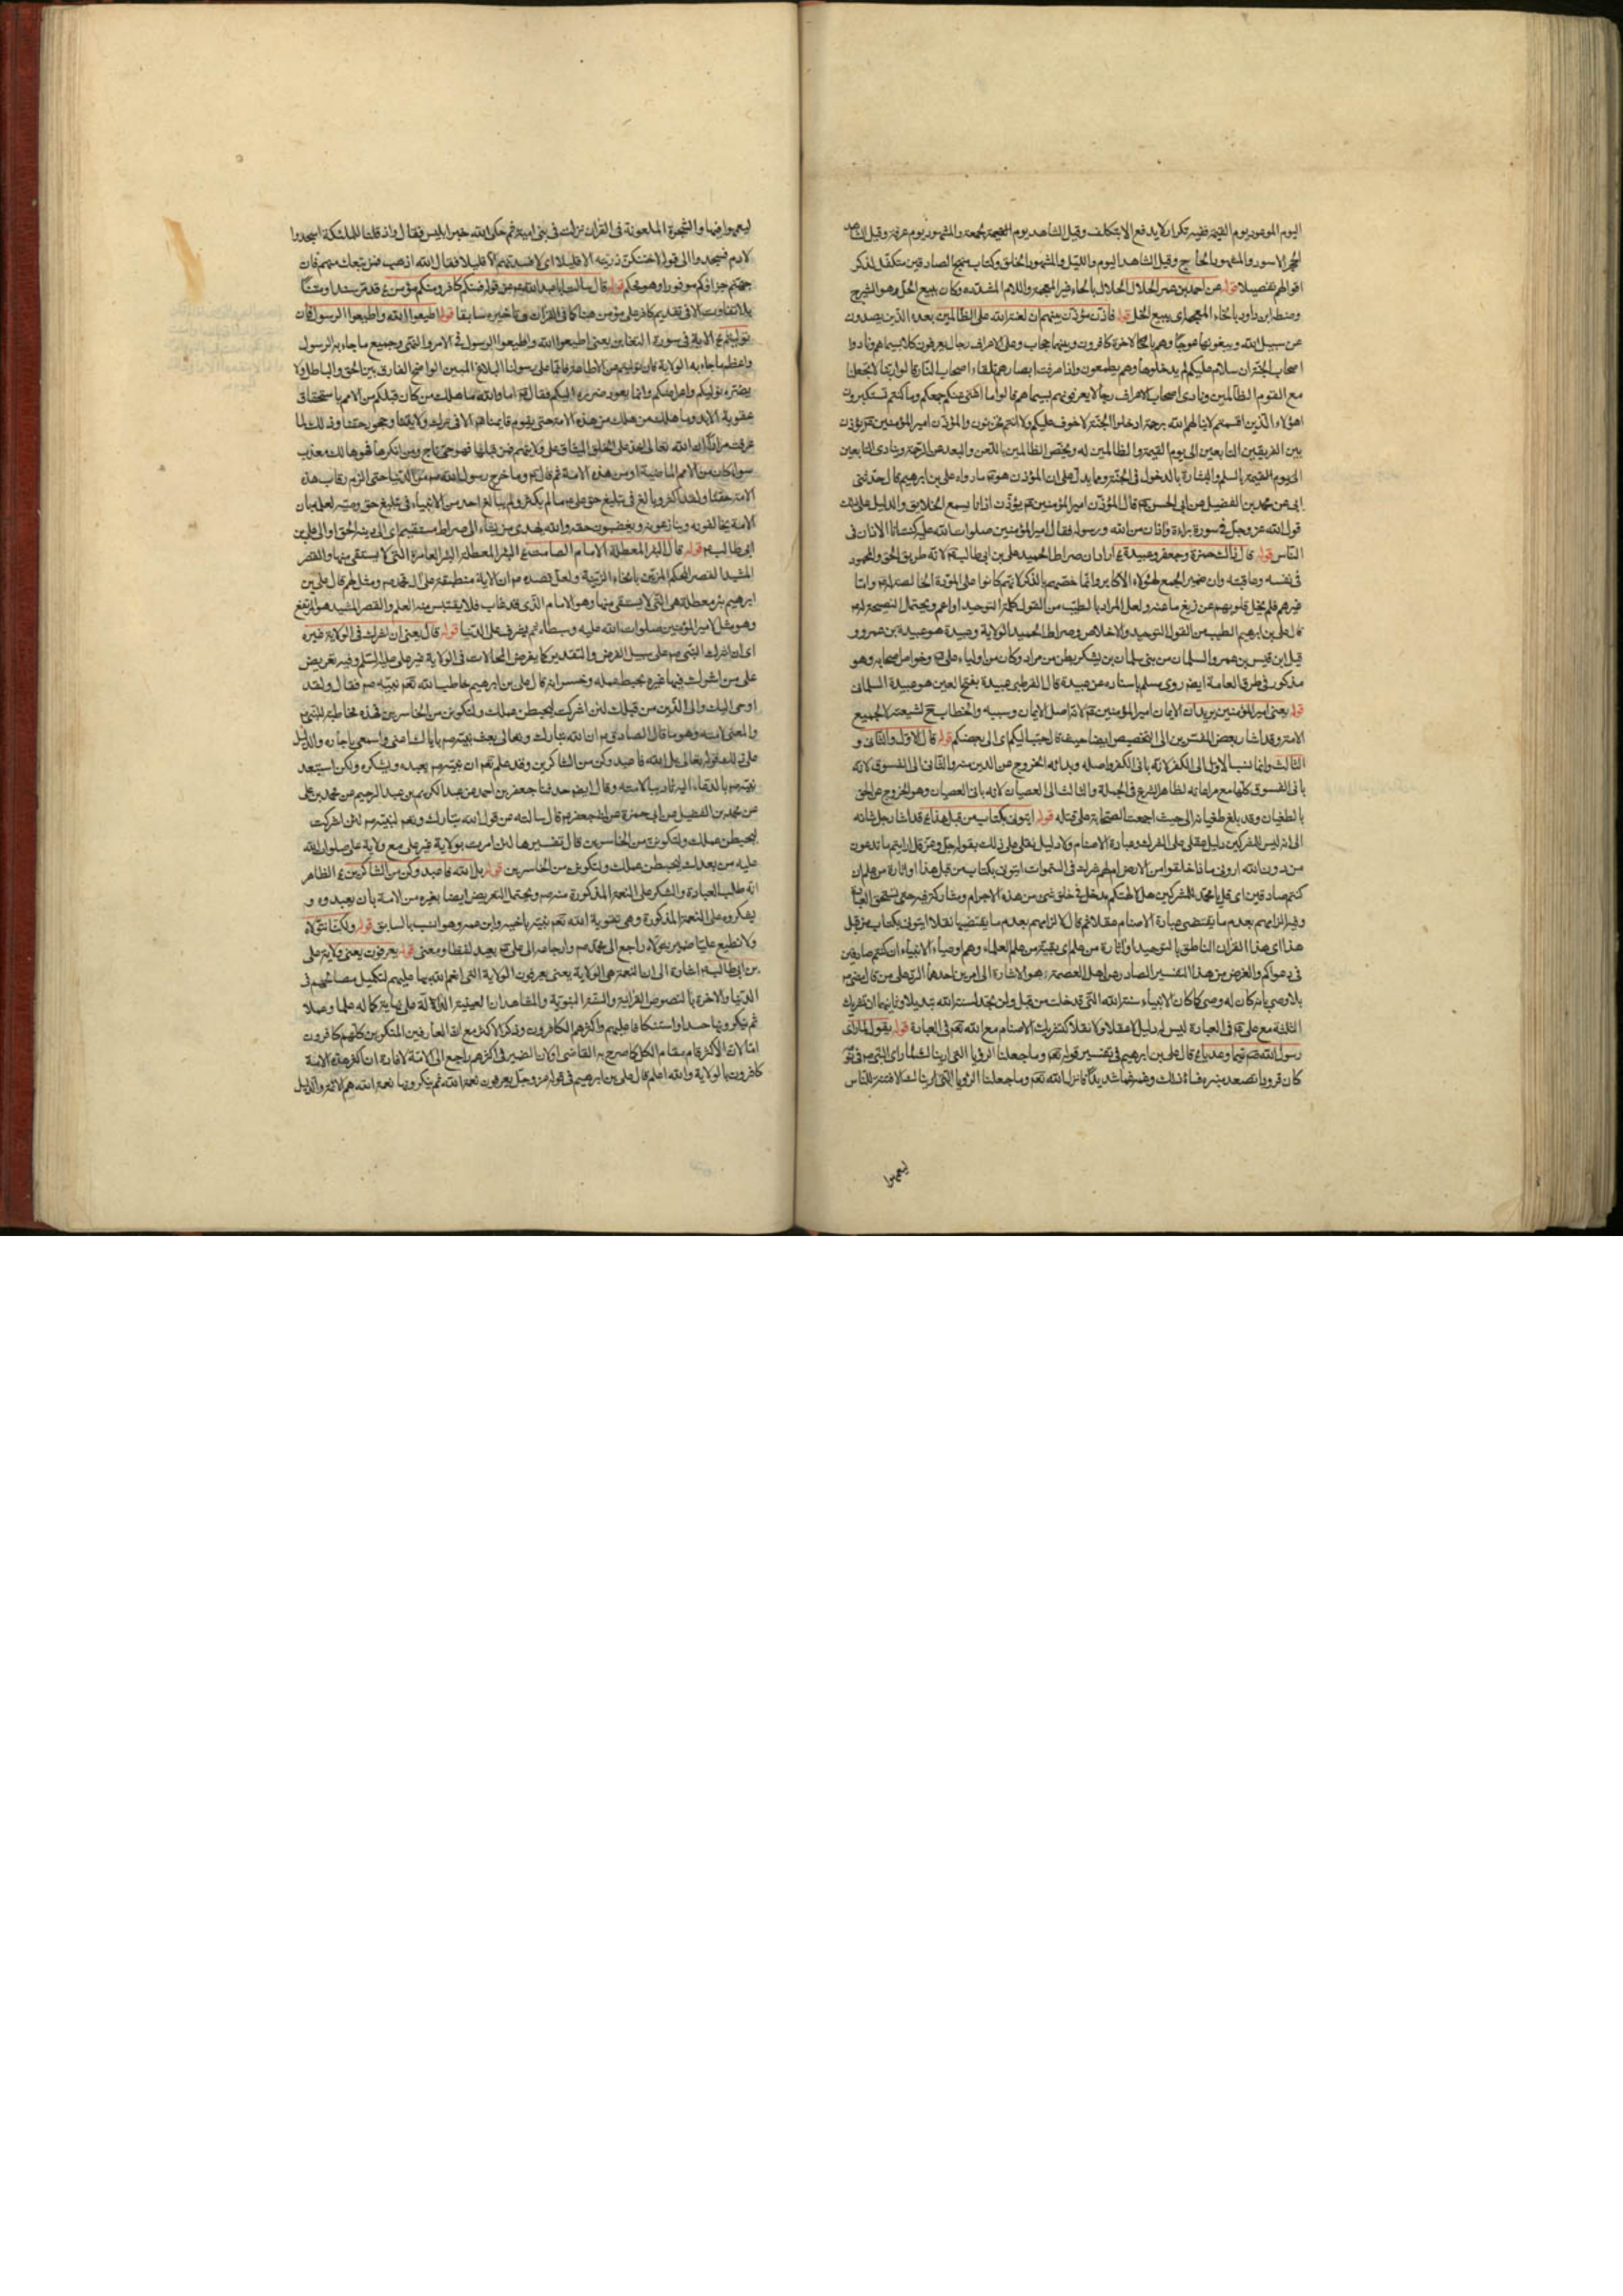 اليوم الموعود يوم القيمة ففيه تكرار لا يدفع الا بتكلف وقيل الشاهد يوم الجمعة والمشهود يوم عرفة وقيل الشاهد
الحجر الاسود والمشهود الحاج وقيل الشاهد اليوم والليل والمشهود الخلق وكتاب منهج الصادقين متكفل لذكر
اقوالهم تفصيلا قوله عن احمد بن عمر الحلال الحلال بالحاء غير المعجمة واللام المشددة وكان يبيع الحل وهو الشيرج
وضبطه ابن داود بالخاء المعجمة اى يبيع الخل قوله فاذن مؤذن بينهم ان لعنة الله على الظالمين بعده الذين يصدون
عن سبيل الله ويبغونها عوجا وهم بالاخرة كافرون وبينهما حجاب وعلى الاعراف رجال يعرفون كلا بسيماهم ونادوا
اصحاب الجنة ان سلام عليكم لم يدخلوها وهم يطمعون واذا صرفت ابصارهم تلقاء اصحاب النار قالوا ربنا لا تجعلنا
مع القوم الظالمين ونادى اصحاب الاعراف رجالا يعرفونهم بسيماهم قالوا ما اغنى عنكم جمعكم وما كنتم تستكبرون
اهؤلاء الذين اقسمتم لا ينالهم الله برحمة ادخلوا الجنة لا خوف عليكم ولا انتم تحزنون والمؤذن امير المؤمنين عم يؤذن
بين الفريقين التابعين الى يوم القيمة والظالمين له ويختص الظالمين باللعن والبعد عن الرحمة وينادى التابعين
الى يوم القيمة بالسلم والبشارة بالدخول فى الجنة ومما يدل على ان المؤذن هو عم ما رواه على بن ابرهيم قال حدثنى
ابى عن محمد بن الفضيل عن ابى الحسن عم قال المؤذن امير المؤمنين عم يؤذن اذانا يسمع الخلايق والدليل على ذلك
قول الله عز وجل فى سورة براءة واذان من الله ورسوله فقال امير المؤمنين صلوات الله عليه كنت انا الاذان فى
الناس قوله قال ذاك حمزة وجعفر وعبيدة اراد ان صراط الحميد على بن ابى طالب عم لانه طريق الحق والمحمود
فى نفسه وعاقبته وان ضمير الجمع لهؤلاء الاكابر وانما خصهم بالذكر لانهم كانوا على المودة الخالصة له واما
غيرهم فلم يخل قلوبهم عن زيغ ما عنه ولعل المراد بالطيب من القول كلمة التوحيد او اعم ويحتمل النصيحة له
قال على بن ابرهيم الطيب من القول التوحيد والاخلاص وصراط الحميد الولاية وعبيدة هو عبيدة بن عمرو و
قيل ابن قيس بن عمر والسلمان من بنى سلمان بن يشكر بطن من مراد وكان من اولياء على عم وخواص اصحابه وهو
مذكور فى طرق العامة ايضا روى مسلم باسناده عن عبيدة قال القرطبى عبيدة بفتح العين هو عبيدة السلمانى
قوله يعنى امير المؤمنين يريد ان الايمان امير المؤمنين عم لانه اصل الايمان وسببه والخطاب لشيعته لا لجميع
الامة وقد اشار بعض المفسرين الى التخصيص ايضا حيث قال حبب اليكم اى الى بعضكم قوله قال الاول والثانى و
الثالث وانما نسب الاول الى الكفر لانه بانى الكفر واصله وبداوه الخروج عن الدين منه والثانى الى الفسوق لانه
بانى الفسوق كلها مع مراعاته لظاهر الشرع فى الجملة والثالث الى العصيان لانه بانى العصيان وهو الخروج عن الحق
بالطغيان وقد بلغ طغيانه الى حيث اجمعت الصحابة على قتله قوله ايتونى بكتاب من قبل هذا قد اشار جل شانه
الى انه ليس للمشركين دليل عقلى على الشرك وعبادة الاصنام ولا دليل نقلى على ذلك بقوله جل وعز قل ارايتم ما تدعون
من دون الله ارونى ماذا خلقوا من الارض ام لهم شرك فى السموات ايتونى بكتاب من قبل هذا او اثارة من علم ان
كنتم صادقين اى قل يا محمد للمشركين هل لالهتكم مدخل فى خلق شىء من هذه الاجرام ومشاركة فيه حتى تستحق العبادة
وفيه الزامهم بعدم ما يقتضى عبادة الاصنام عقلا ثم قال لالزامهم بعدم ما يقتضيها نقلا ايتونى بكتاب من قبل
هذا اى هذا القران الناطق بالتوحيد او اثارة من علم اى بقية من علم العلماء وهم اوصياء الانبياء ان كنتم صادقين
فى دعواكم والغرض من هذا التفسير الصادر عن اهل العصمة هو الاشارة الى امرين احدهما الرد على من قال مضى عم
بلا وصى بانه كان له وصى كما كان لانبياء سنة الله التى قد خلت من قبل ولن تجد لسنة الله تبديلا وثانيهما ان تشريك
الثلثة مع على عم فى العبادة ليس له دليل لا عقلا ولا نقلا كتشريك الاصنام مع الله تعم فى العبادة قوله يقول لما راى
رسول الله صم تيما وعديا قال على بن ابرهيم فى تفسير قوله تعم وما جعلنا الرؤيا التى اريناك لما راى النبى صم فى نومه
كان قرودا تصعد منبره فساءه ذلك وغمه غما شديدا فانزل الله تعم وما جعلنا الرؤيا التى اريناك الا فتنة للناس
ليعمهوا
ليعمهوا فيها والشجرة الملعونة فى القران نزلت فى بنى امية ثم حكى الله خبر ابليس فقال واذ قلنا للملئكة اسجدوا
لادم فسجدوا الى قوله لاحتنكن ذريته الا قليلا اى لافسدنهم الا قليلا فقال الله اذهب فمن تبعك منهم فان
جهنم جزاؤكم موفورا وهو محكم قوله قال سالت ابا عبد الله عم عن قوله فمنكم كافر ومنكم مؤمن قد مر سندا ومتنا
بلا تفاوت الا فى تقديم كافر على مؤمن هنا كما فى القران وتاخيره سابقا قوله اطيعوا الله واطيعوا الرسول فان
توليتم الاية فى سورة التغابن يعنى اطيعوا الله واطيعوا الرسول فى الامر والنهى وجميع ما جاء به الرسول
واعظم ما جاء به الولاية فان توليتم عن الاطاعة فانما على رسولنا البلاغ المبين الواضح الفارق بين الحق والباطل ولا
يضره توليكم واعراضكم وانما يعود ضرره اليكم فقال عم اما والله ما هلك من كان قبلكم من الامم باستحقاق
عقوبة الابد وما هلك من هلك من هذه الامة حتى يقوم قايمنا عم الا فى ترك ولايتنا وجحود حقنا وذلك لما
عرفت مرارا ان الله تعالى اخذ على الخلق الميثاق على ولايتهم فمن قبلها فهو حى ناج ومن انكرها فهو هالك معذب
سواء كان من الامم الماضية او من هذه الامة ثم قال عم وما خرج رسول الله صم من الدنيا حتى الزم رقاب هذه
الامة حقنا ولقد اكثر وبالغ فى تبليغ حق على عم ما لم يكثر ولم يبالغ احد من الانبياء فى تبليغ حق وصيه لعلمه بان
الامة يخالفونه وينازعونه ويغصبون حقه والله يهدى من يشاء الى صراط مستقيم اى الى دينه الحق والى على بن
ابى طالب عم قوله قال البئر المعطلة الامام الصامت البئر المعطلة البئر العامرة التى لا يستقى منها والقصر
المشيد القصر المحكم المزين بانحاء الزينة ولعل قصده عم ان الاية منطبقة على ال محمد صم ومثل لهم قال على بن
ابرهيم بئر معطلة هى التى لا يستقى منها وهو الامام الذى قد غاب فلا يقتبس منه العلم والقصر المشيد هو المرتفع
وهو مثل لامير المؤمنين صلوات الله عليه وسبطاه ثم يشرف على الدنيا قوله قال يعنى ان اشركت فى الولاية غيره
اى ان اشرك النبى صم على سبيل الفرض والتقدير كما يفرض المحالات فى الولاية غير على عليه السلم وفيه تعريض
على من اشرك فيها غيره بحبط عمله وخسرانه قال على بن ابرهيم خاطب الله تعم نبيه صم فقال ولقد
اوحى اليك والى الذين من قبلك لئن اشركت ليحبطن عملك ولتكونن من الخاسرين فهذه مخاطبة للنبى صم
والمعنى لامته وهو ما قال الصادق عم ان الله تبارك وتعالى بعث نبيه صم باياك اعنى واسمعى يا جاره والدليل
على ذلك قوله تعالى بل الله فاعبد وكن من الشاكرين وقد علم تعم ان نبيه صم يعبده ويشكره ولكن استعبد
نبيه صم بالدعاء اليه تاديبا لامته وقال ايضا حدثنا جعفر بن احمد عن عبد الكريم بن عبد الرحيم عن محمد بن على
عن محمد بن الفضيل عن ابى حمزة عن ابى جعفر عم قال سالته عن قول الله تبارك وتعم لنبيه صم لئن اشركت
ليحبطن عملك ولتكونن من الخاسرين قال تفسيرها لئن امرت بولاية غير على مع ولاية على صلوات الله
عليه من بعدك ليحبطن عملك ولتكونن من الخاسرين قوله بل الله فاعبد وكن من الشاكرين الظاهر
انه طلب العبادة والشكر على النعمة المذكورة منه صم ويحتمل التعريض ايضا بغيره من الامة بان يعبدوه و
يشكروه على النعمة المذكورة وهى تقوية الله تعم نبيه باخيه وابن عمه وهو انسب بالسابق قوله ولكنا نتولاه
ولا نطيع عليا ضمير نتولاه راجع الى محمد صم وارجاعه الى على عم بعيد لفظا ومعنى قوله يعرفون يعنى ولاية على
بن ابى طالب عم اشارة الى ان النعمة هى الولاية يعنى يعرفون الولاية التى انعم الله بها عليهم لتكميل مصالحهم فى
الدنيا والاخرة بالنصوص القرانية والسنة النبوية والمشاهدات العينية الدالة على نهاية كماله علما وعملا
ثم ينكرونها حسدا واستنكافا عليهم واكثرهم الكافرون وذكر الاكثر مع ان العارفين المنكرين كلهم كافرون
اما لان الاكثر قام مقام الكل كما صرح به القاضى او لان الضمير فى اكثرهم راجع الى الامة لافادة ان اكثر هذه الامة
كافرون بالولاية والله اعلم قال على بن ابرهيم فى قوله عز وجل يعرفون نعمة الله ثم ينكرونها نعمة الله هم الائمة والدليل